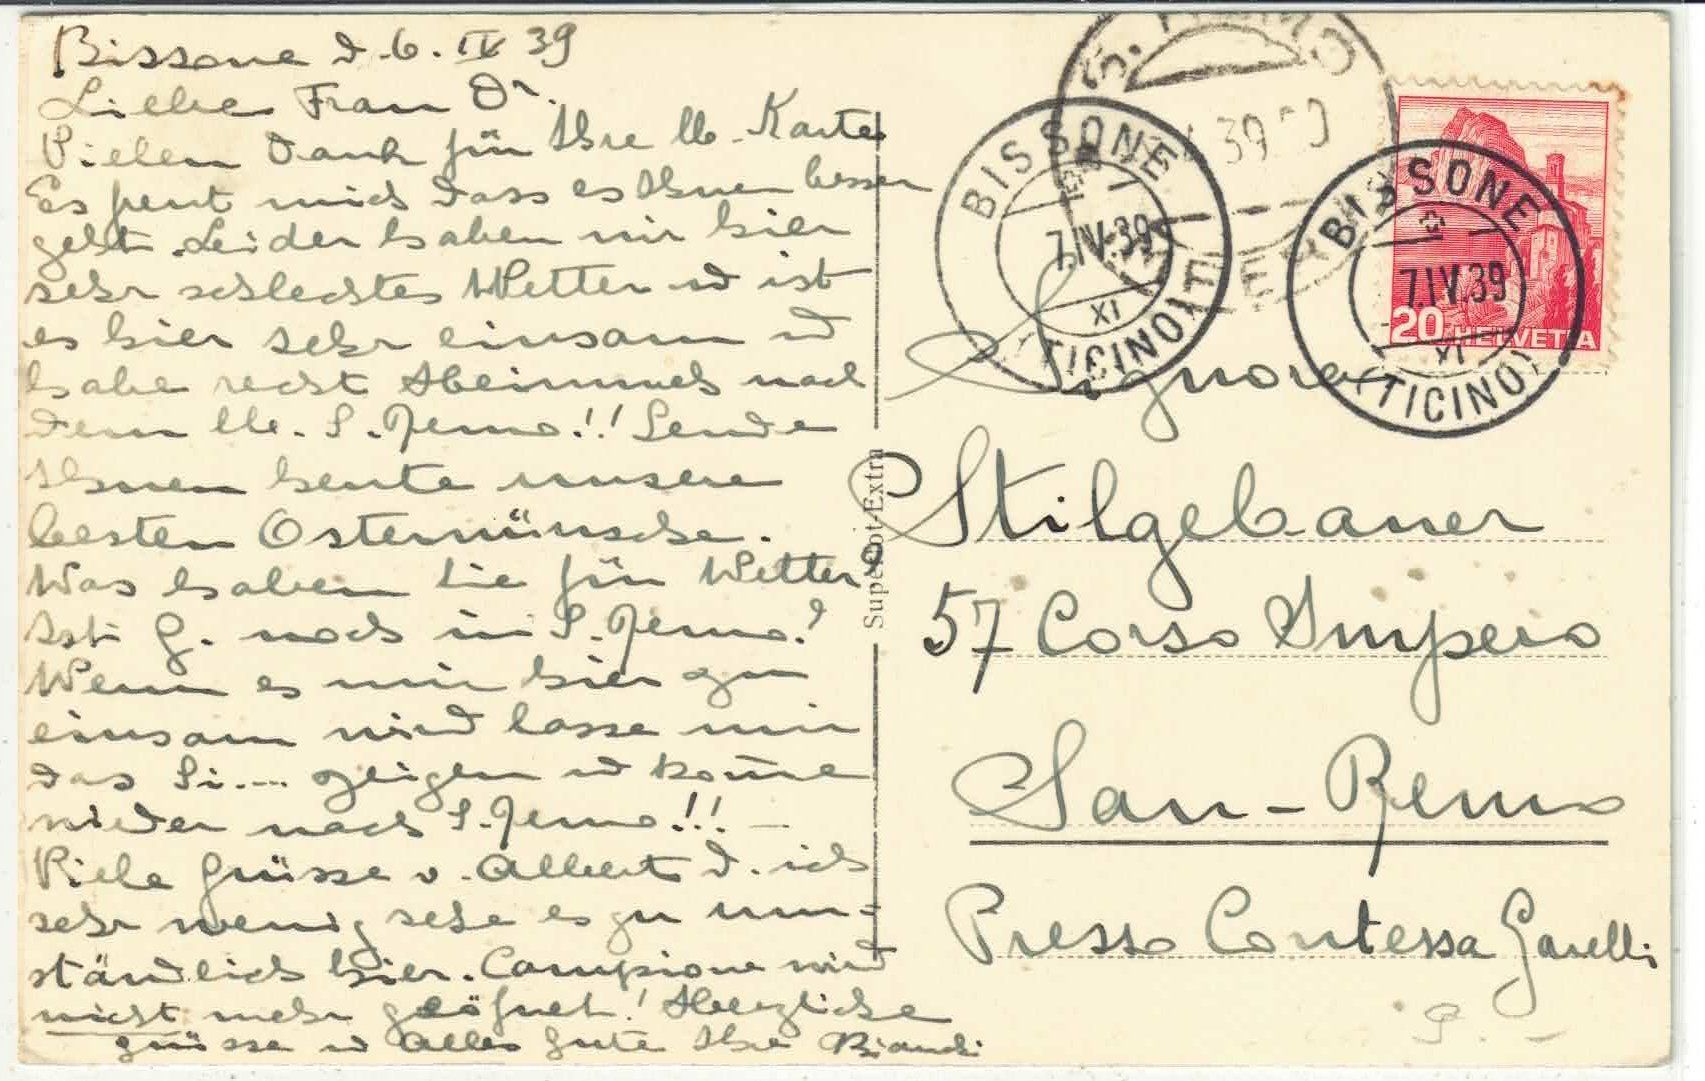 Bissone d. 6. IV 39
Liebe Frau Dr.
Vielen Dank für Ihre lb. Karte
Es freut mich dass es Ihnen besser
geht. Leider haben wir hier
sehr schlechtes Wetter u ist
es hier sehr einsam u
habe recht Heimweh nach
dem lb. S. Remo!! Sende
Ihnen heute unsere
besten Osterwünsche.
Was haben Sie für Wetter?
Ist G. noch in S. Remo?
Wenn es mir hier zu
einsam wird lasse mir
das Si.... zeigen u kom̄e
wieder nach S. Remo!!! —
Viele Grüsse v. Albert d. ich
sehr wenig sehe es zu um=
ständlich hier. Campione wird
nicht mehr geöfnet! Herzliche
grüsse u Alles gute Ihre Bianchi
Superbot-Extra
BISSONE
7.IV.39
XI
(TICINO)
39
BISSONE
7.IV.39
XI
(TICINO)
20 HELVETIA
Signora
Stilgebauer
57 Corso Impero
San-Remo
Presso Contessa Garelli